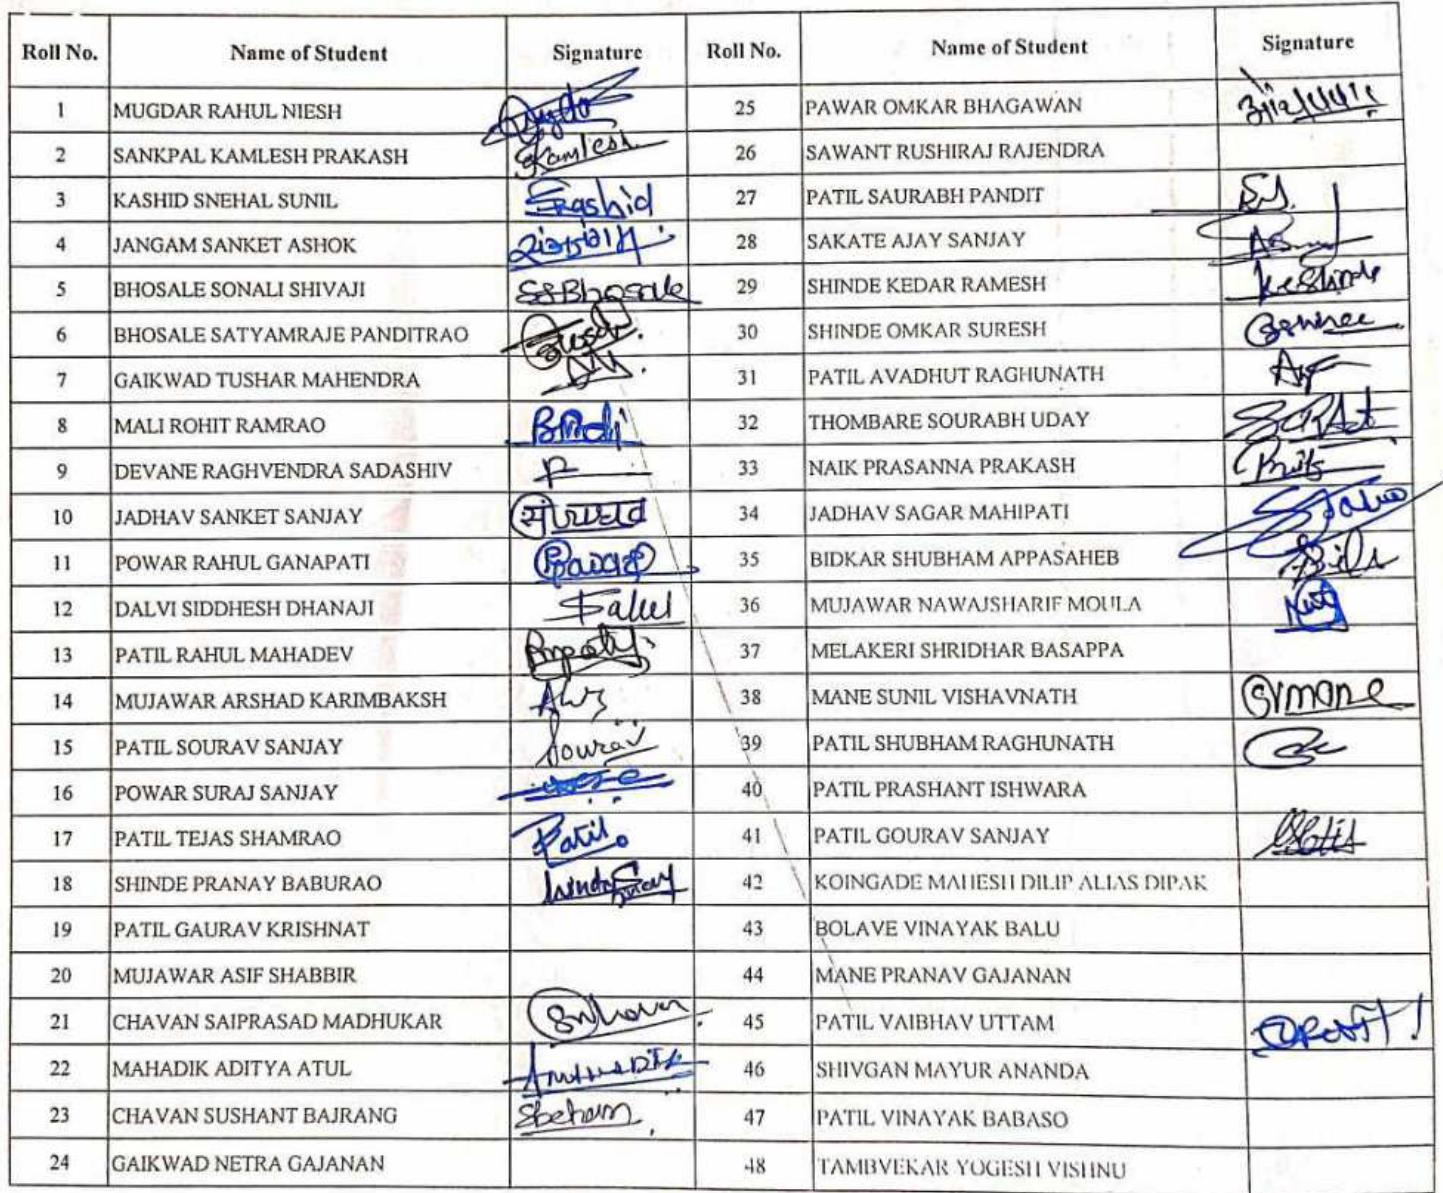 Roll No. Name of Student Signature Roll No. Name of Student Signature
1 MUGDAR RAHUL NIESH 25 PAWAR OMKAR BHAGAWAN
2 SANKPAL KAMLESH PRAKASH Kamlesh 26 SAWANT RUSHIRAJ RAJENDRA
3 KASHID SNEHAL SUNIL 27 PATIL SAURABH PANDIT
4 JANGAM SANKET ASHOK 28 SAKATE AJAY SANJAY
5 BHOSALE SONALI SHIVAJI SSBhosale 29 SHINDE KEDAR RAMESH
6 BHOSALE SATYAMRAJE PANDITRAO 30 SHINDE OMKAR SURESH
7 GAIKWAD TUSHAR MAHENDRA 31 PATIL AVADHUT RAGHUNATH
8 MALI ROHIT RAMRAO 32 THOMBARE SOURABH UDAY
9 DEVANE RAGHVENDRA SADASHIV 33 NAIK PRASANNA PRAKASH
10 JADHAV SANKET SANJAY 34 JADHAV SAGAR MAHIPATI
11 POWAR RAHUL GANAPATI 35 BIDKAR SHUBHAM APPASAHEB
12 DALVI SIDDHESH DHANAJI 36 MUJAWAR NAWAJSHARIF MOULA
13 PATIL RAHUL MAHADEV 37 MELAKERI SHRIDHAR BASAPPA
14 MUJAWAR ARSHAD KARIMBAKSH 38 MANE SUNIL VISHAVNATH SVmane
15 PATIL SOURAV SANJAY Sourav 39 PATIL SHUBHAM RAGHUNATH
16 POWAR SURAJ SANJAY 40 PATIL PRASHANT ISHWARA
17 PATIL TEJAS SHAMRAO Patil. 41 PATIL GOURAV SANJAY
18 SHINDE PRANAY BABURAO 42 KOINGADE MAHESH DILIP ALIAS DIPAK
19 PATIL GAURAV KRISHNAT 43 BOLAVE VINAYAK BALU
20 MUJAWAR ASIF SHABBIR 44 MANE PRANAV GAJANAN
21 CHAVAN SAIPRASAD MADHUKAR 45 PATIL VAIBHAV UTTAM
22 MAHADIK ADITYA ATUL 46 SHIVGAN MAYUR ANANDA
23 CHAVAN SUSHANT BAJRANG 47 PATIL VINAYAK BABASO
24 GAIKWAD NETRA GAJANAN 48 TAMBVEKAR YOGESH VISHNU